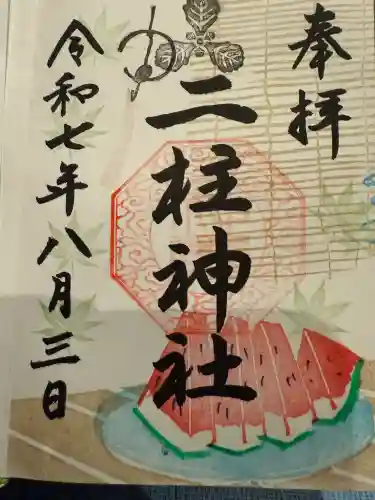 奉拝
二柱神社
令和七年八月三日